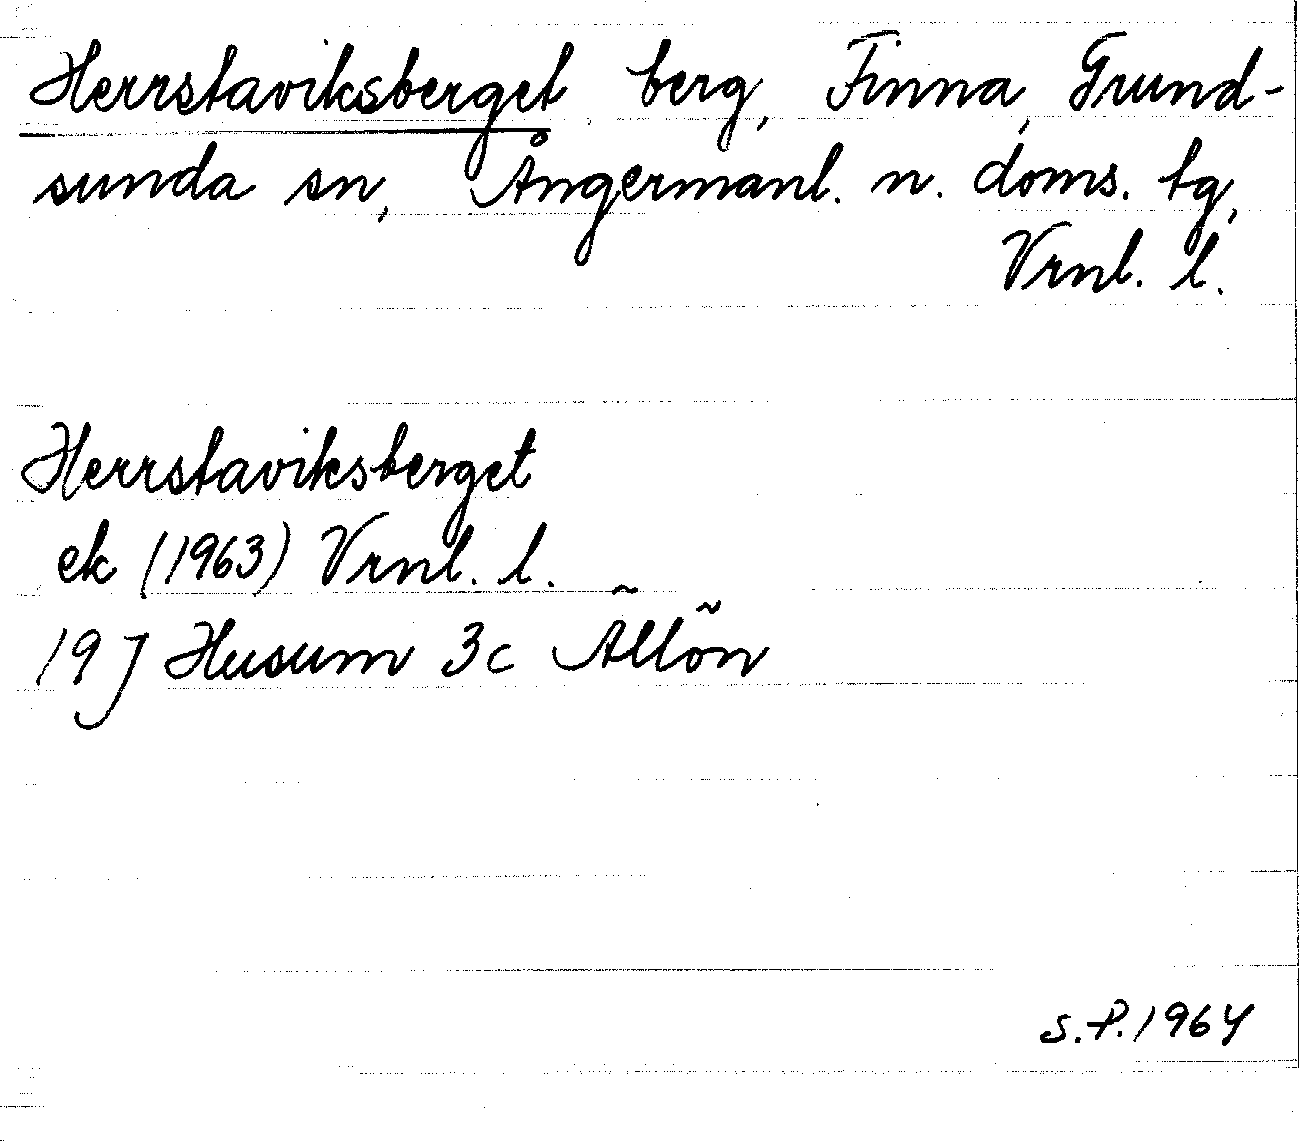 Herrstaviksberget berg, Finna, Grund-
sunda sn, Ångermanl. n. doms. tg,
Vrnl. l.
Herrstaviksberget
ek (1963) Vrnl. l.
19 J Husum 3c Ällön
S.P. 1964